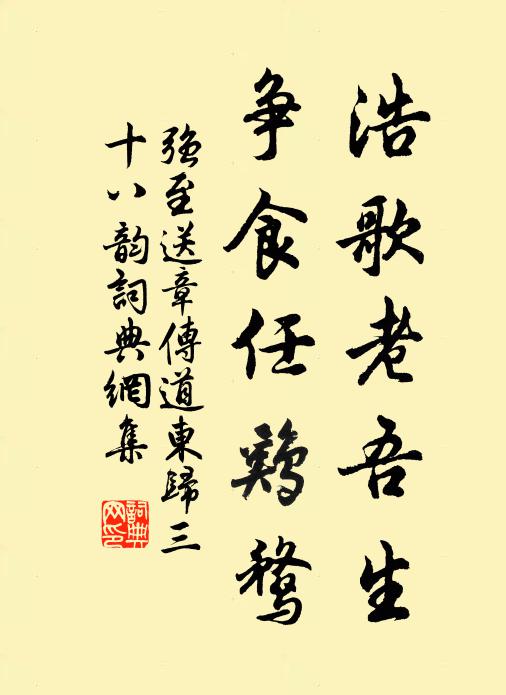 浩歌老吾生
争食任鷄鶩
强至送章傳道東歸三
十八韵詞典網集
詞典
网印